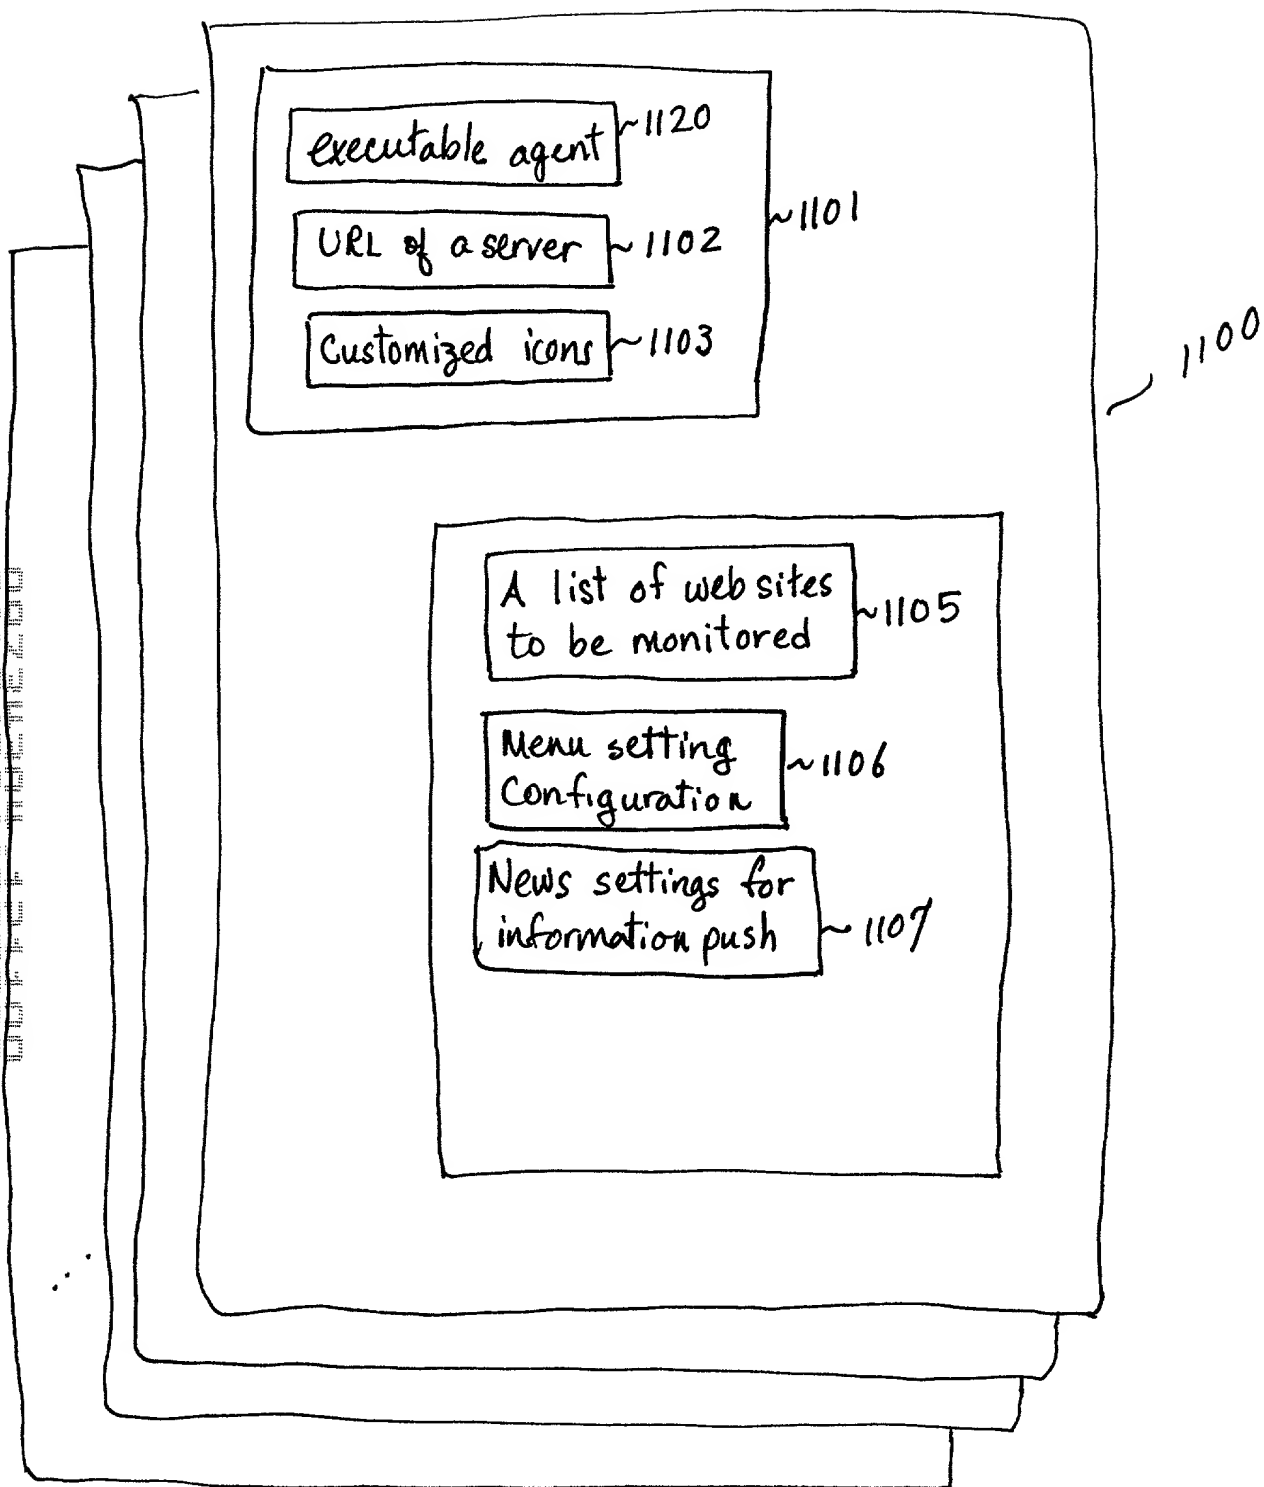 executable agent
1120
URL of a server
1102
1101
Customized icons
1103
1100
A list of web sites
to be monitored
1105
Menu setting
Configuration
1106
News settings for
information push
1107